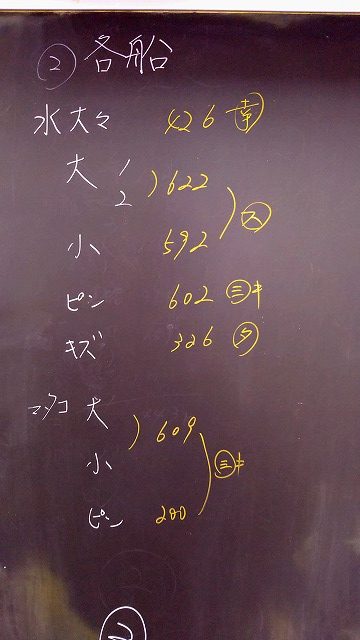 ② 各船
水 大々 426 幸
大 1 ) 622
2
ス
小 592
ピン 602 三キ
キズ 326 タ
マダコ 大
) 609
小
三キ
ピン 200
2